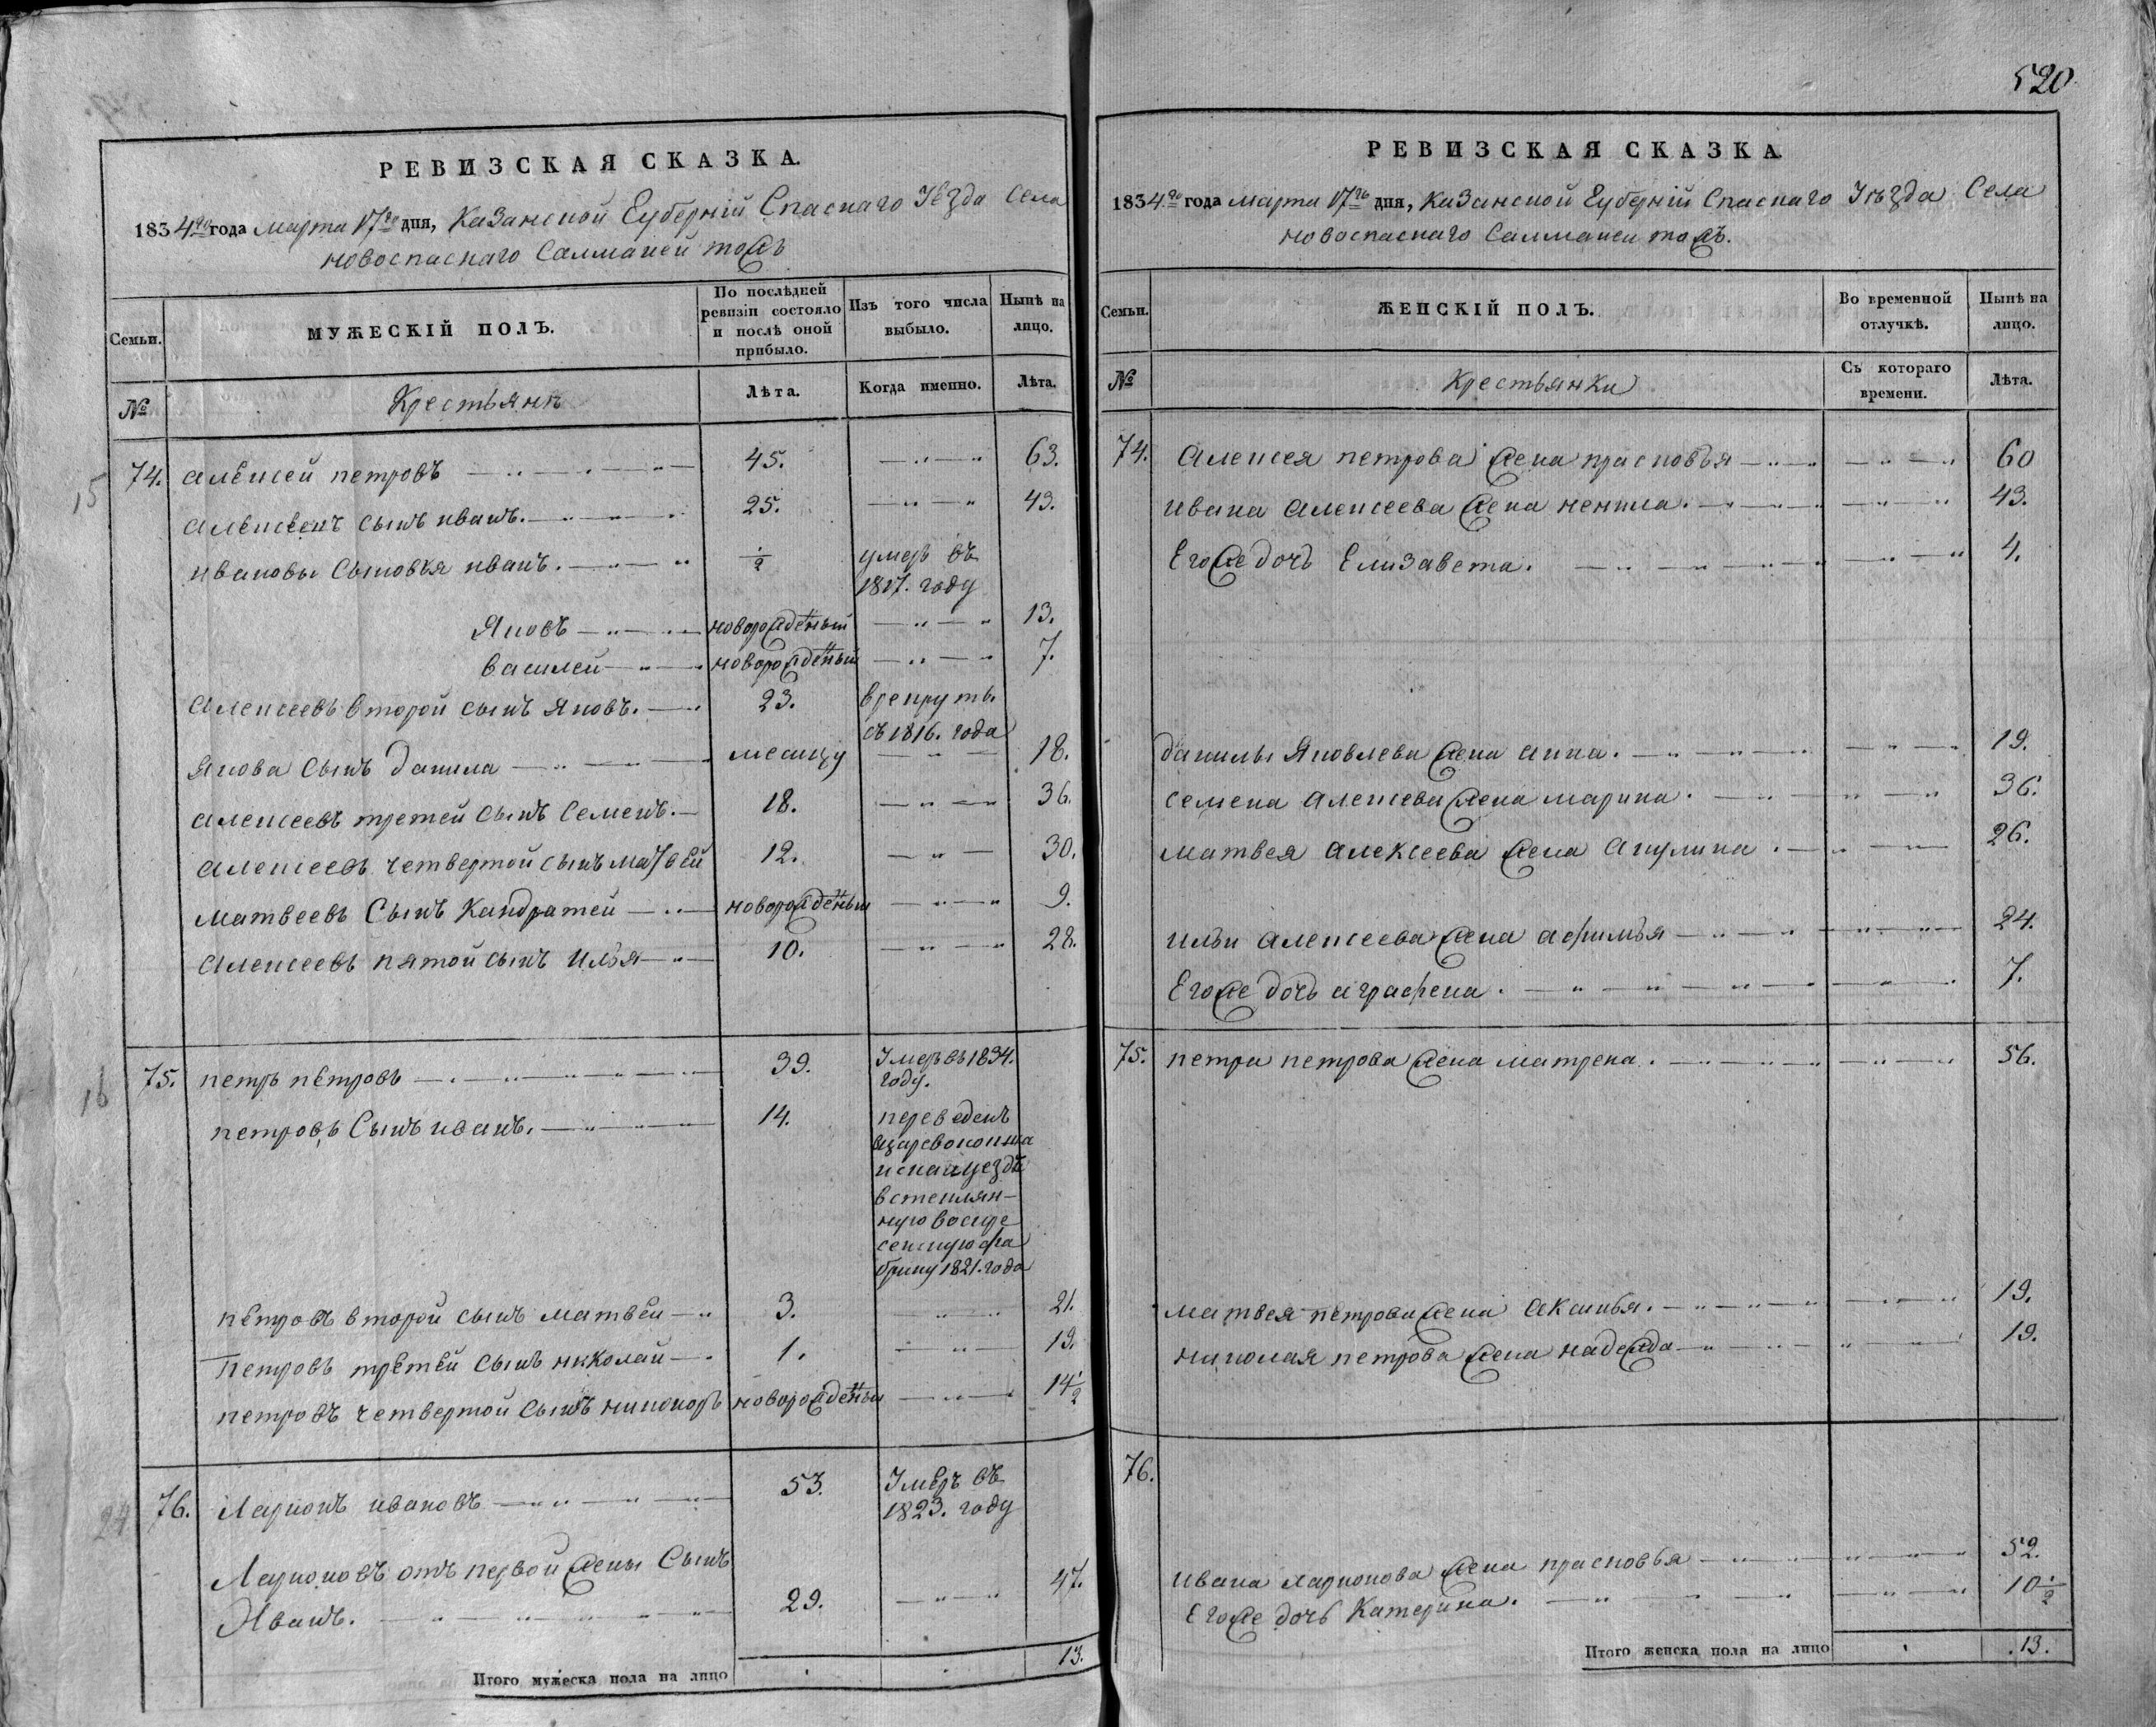 520
РЕВИЗСКАЯ СКАЗКА.
1834го года марта 17го дня, Казанской Губерніи Спаскаго Уѣзда Села
новоспаскаго Салманей тожъ
Семьи.
МУЖЕСКІЙ ПОЛЪ.
По послѣдней ревизіи состояло и послѣ оной прибыло.
Изъ того числа выбыло.
Нынѣ на лицо.
№
Крестьянъ
Лѣта.
Когда именно.
Лѣта.
15 74. алексей петровъ 45. 63.
алексеевъ сынъ иванъ. 25. 43.
ивановы сыновья иванъ. 1/2 умеръ въ
1817. году
Яковъ новорожденный 13.
василей новорожденный 7.
Алексеевъ второй сынъ яковъ. 23. в рекруты
съ 1816. года
Якова сынъ данила месяцу 18.
алексеевъ третей сынъ семенъ. 18. 36.
алексеевъ четвертой сынъ матвей 12. 30.
матвеевъ Сынъ Кандратей новорожденный 9.
алексеевъ пятой сынъ илья 10. 28.
16 75. петръ петровъ 39. Умеръ въ 1834.
году.
петровъ Сынъ иванъ. 14. переведенъ
вцаревококша
искай уездъ
встеклян-
ную воскре
сенскую фа
брику 1821. года
петровъ второй сынъ матвей 3. 21.
Петровъ третей сынъ николай 1. 19.
петровъ четвертой сынъ никоноръ новорожденный 14 1/2
24 76. Ларионъ ивановъ 53. Умеръ въ
1823. году
Ларионовъ отъ первой жены Сынъ
Иванъ. 29. 47.
Итого мужеска пола на лицо 13.
РЕВИЗСКАЯ СКАЗКА
1834го года марта 17го дня, Казанской Губерніи Спаскаго Уѣзда Села
новоспаскаго Салманеи тожъ.
Семьи.
ЖЕНСКІЙ ПОЛЪ.
Во временной отлучкѣ.
Нынѣ на лицо.
№
Крестьянки
Съ котораго времени.
Лѣта.
74. Алексея петрова жена прасковья 60
ивана алексеева жена ненила. 43.
Его же дочь Елизавета. 4.
данилы Яковлева жена анна. 19.
семена алексеева жена марина. 36.
матвея алексеева жена Акулина. 26.
ильи алексеева жена афимья 24.
Его же дочь аграфена. 7.
75. петра петрова жена матрена. 56.
матвея петрова жена аксинья. 19.
николая петрова жена надежда 19.
76.
ивана ларионова жена прасковья 52.
Его же дочь Катерина. 10 1/2
Итого женска пола на лицо 13.